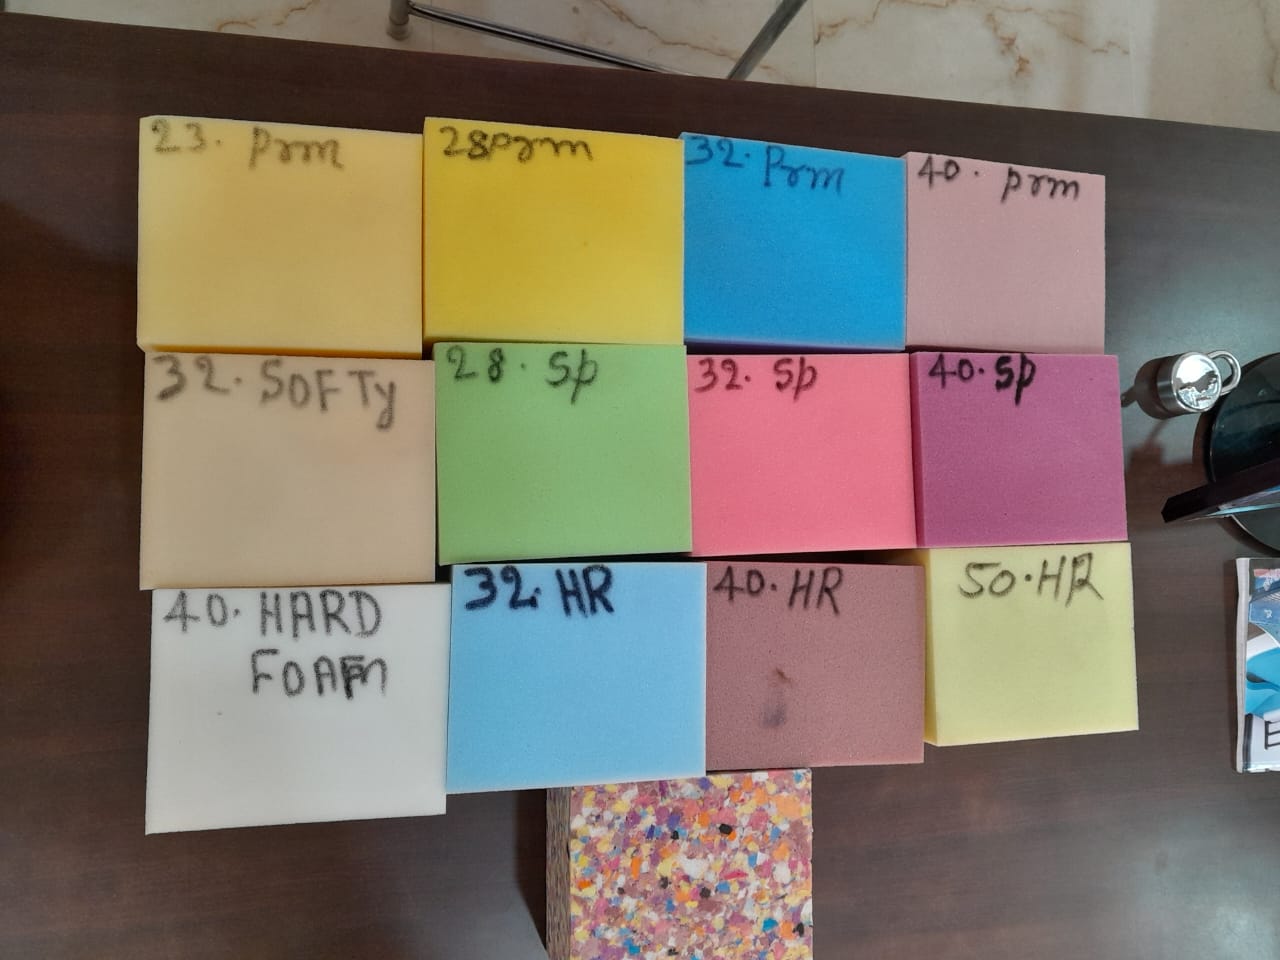 23. Prm
28prm
32. Prm
40. prm
32. SOFTy
28. Sp
32. Sp
40. Sp
40. HARD
FOAM
32. HR
40. HR
50. HR
E